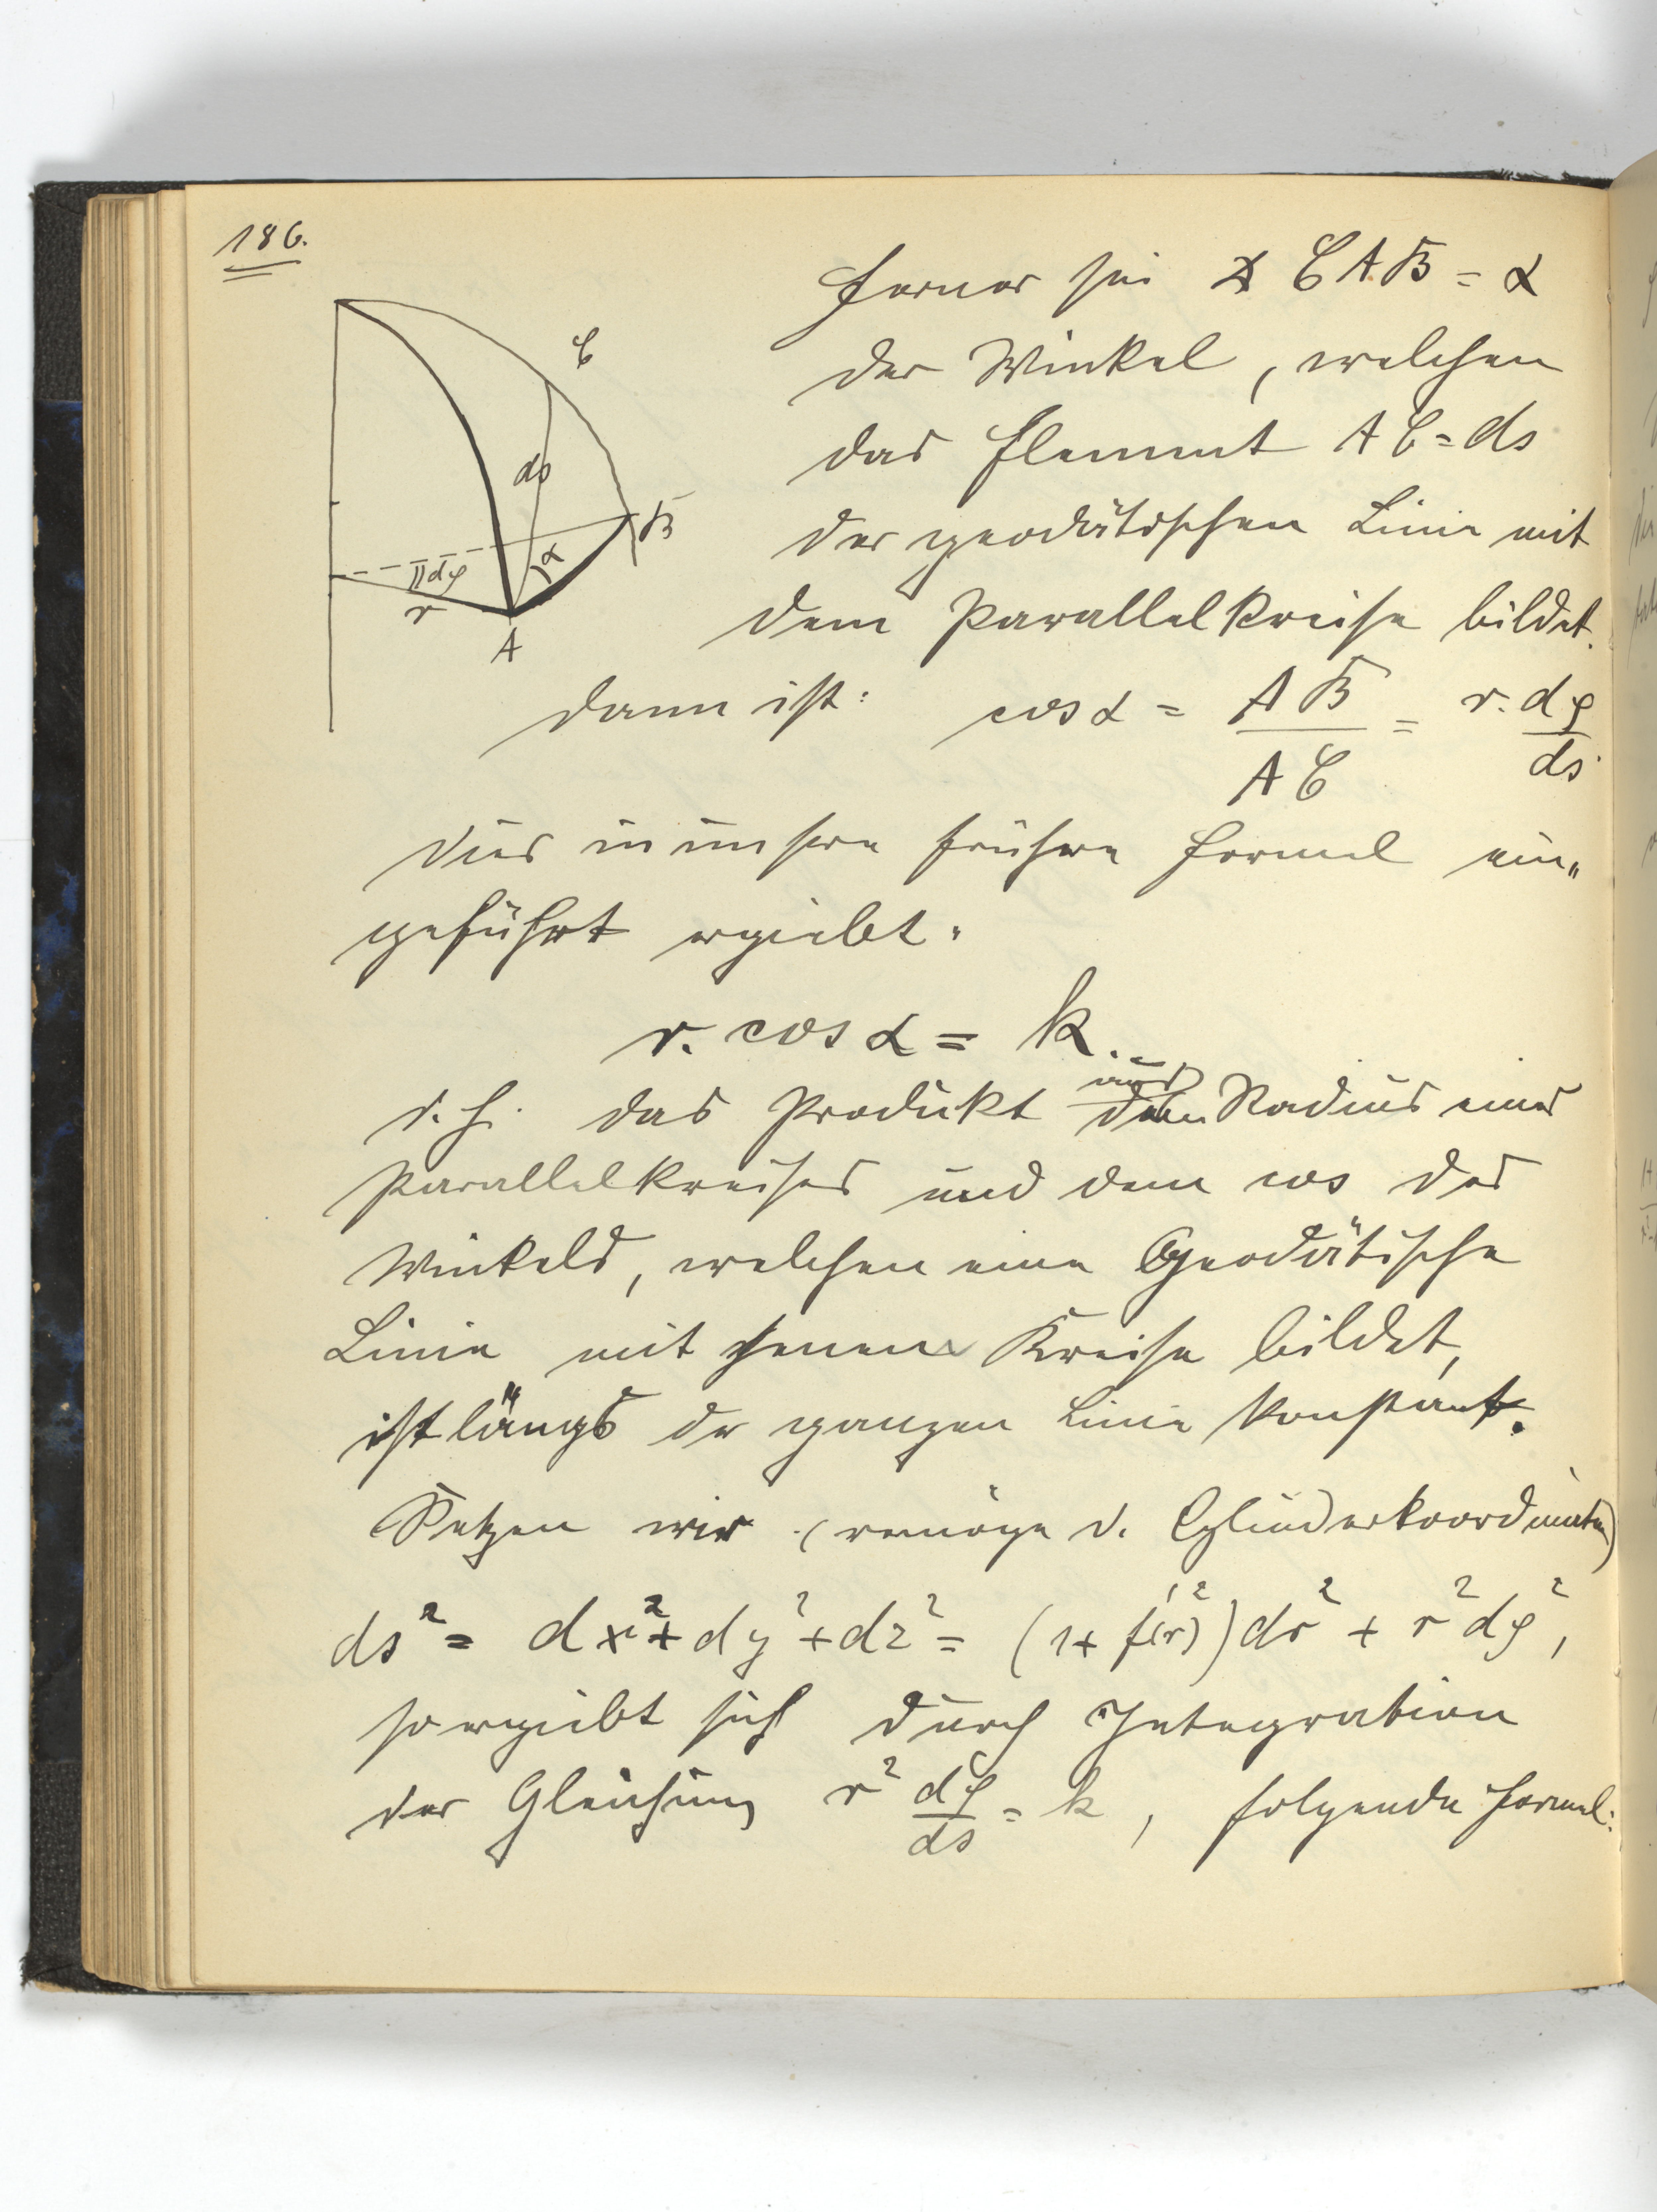 186.
Ferner sei ∢ CAB = α
der Winkel, welchen
das Element AC = ds
der geodätischen Linie mit
dem Parallelkreise bildet.
C
ds
B
α
dφ
r
A
Dann ist: cos α = AB/AC = r·dφ/ds
Dies in unsere frühere Formel ein„
geführt ergiebt:
r. cos α = k.
d. h. das Produkt aus dem Radius eines
Parallelkreises und dem cos des
Winkels, welchen eine Geodätische
Linie mit jenem Kreise bildet,
ist längs der ganzen Linie konstant.
Setzen wir (vermöge d. Cylinderkoordinaten)
ds² = dx² + dy² + dz² = (1 + f'(r)²) dr² + r² dφ²,
so ergiebt sich durch Integration
der Gleichung r² dφ/ds = k, folgende Formel: